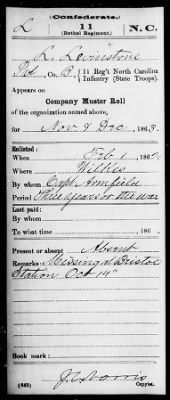 (Confederate.)
L 11 N.C.
(Bethel Regiment.)
L. Lovinstone
Pvt, Co. B, 11 Reg't North Carolina
Infantry (State Troops).
Appears on
Company Muster Roll
of the organization named above,
for Nov & Dec, 1863.
Enlisted:
When Feb 1, 186
Where Wilkes
By whom Capt. Armfield
Period Three years or the war
Last paid:
By whom
To what time , 186 .
Present or absent Absent
Remarks: Missing at Bristoe
Station Oct 14"
Book mark:
(642) Copyist.